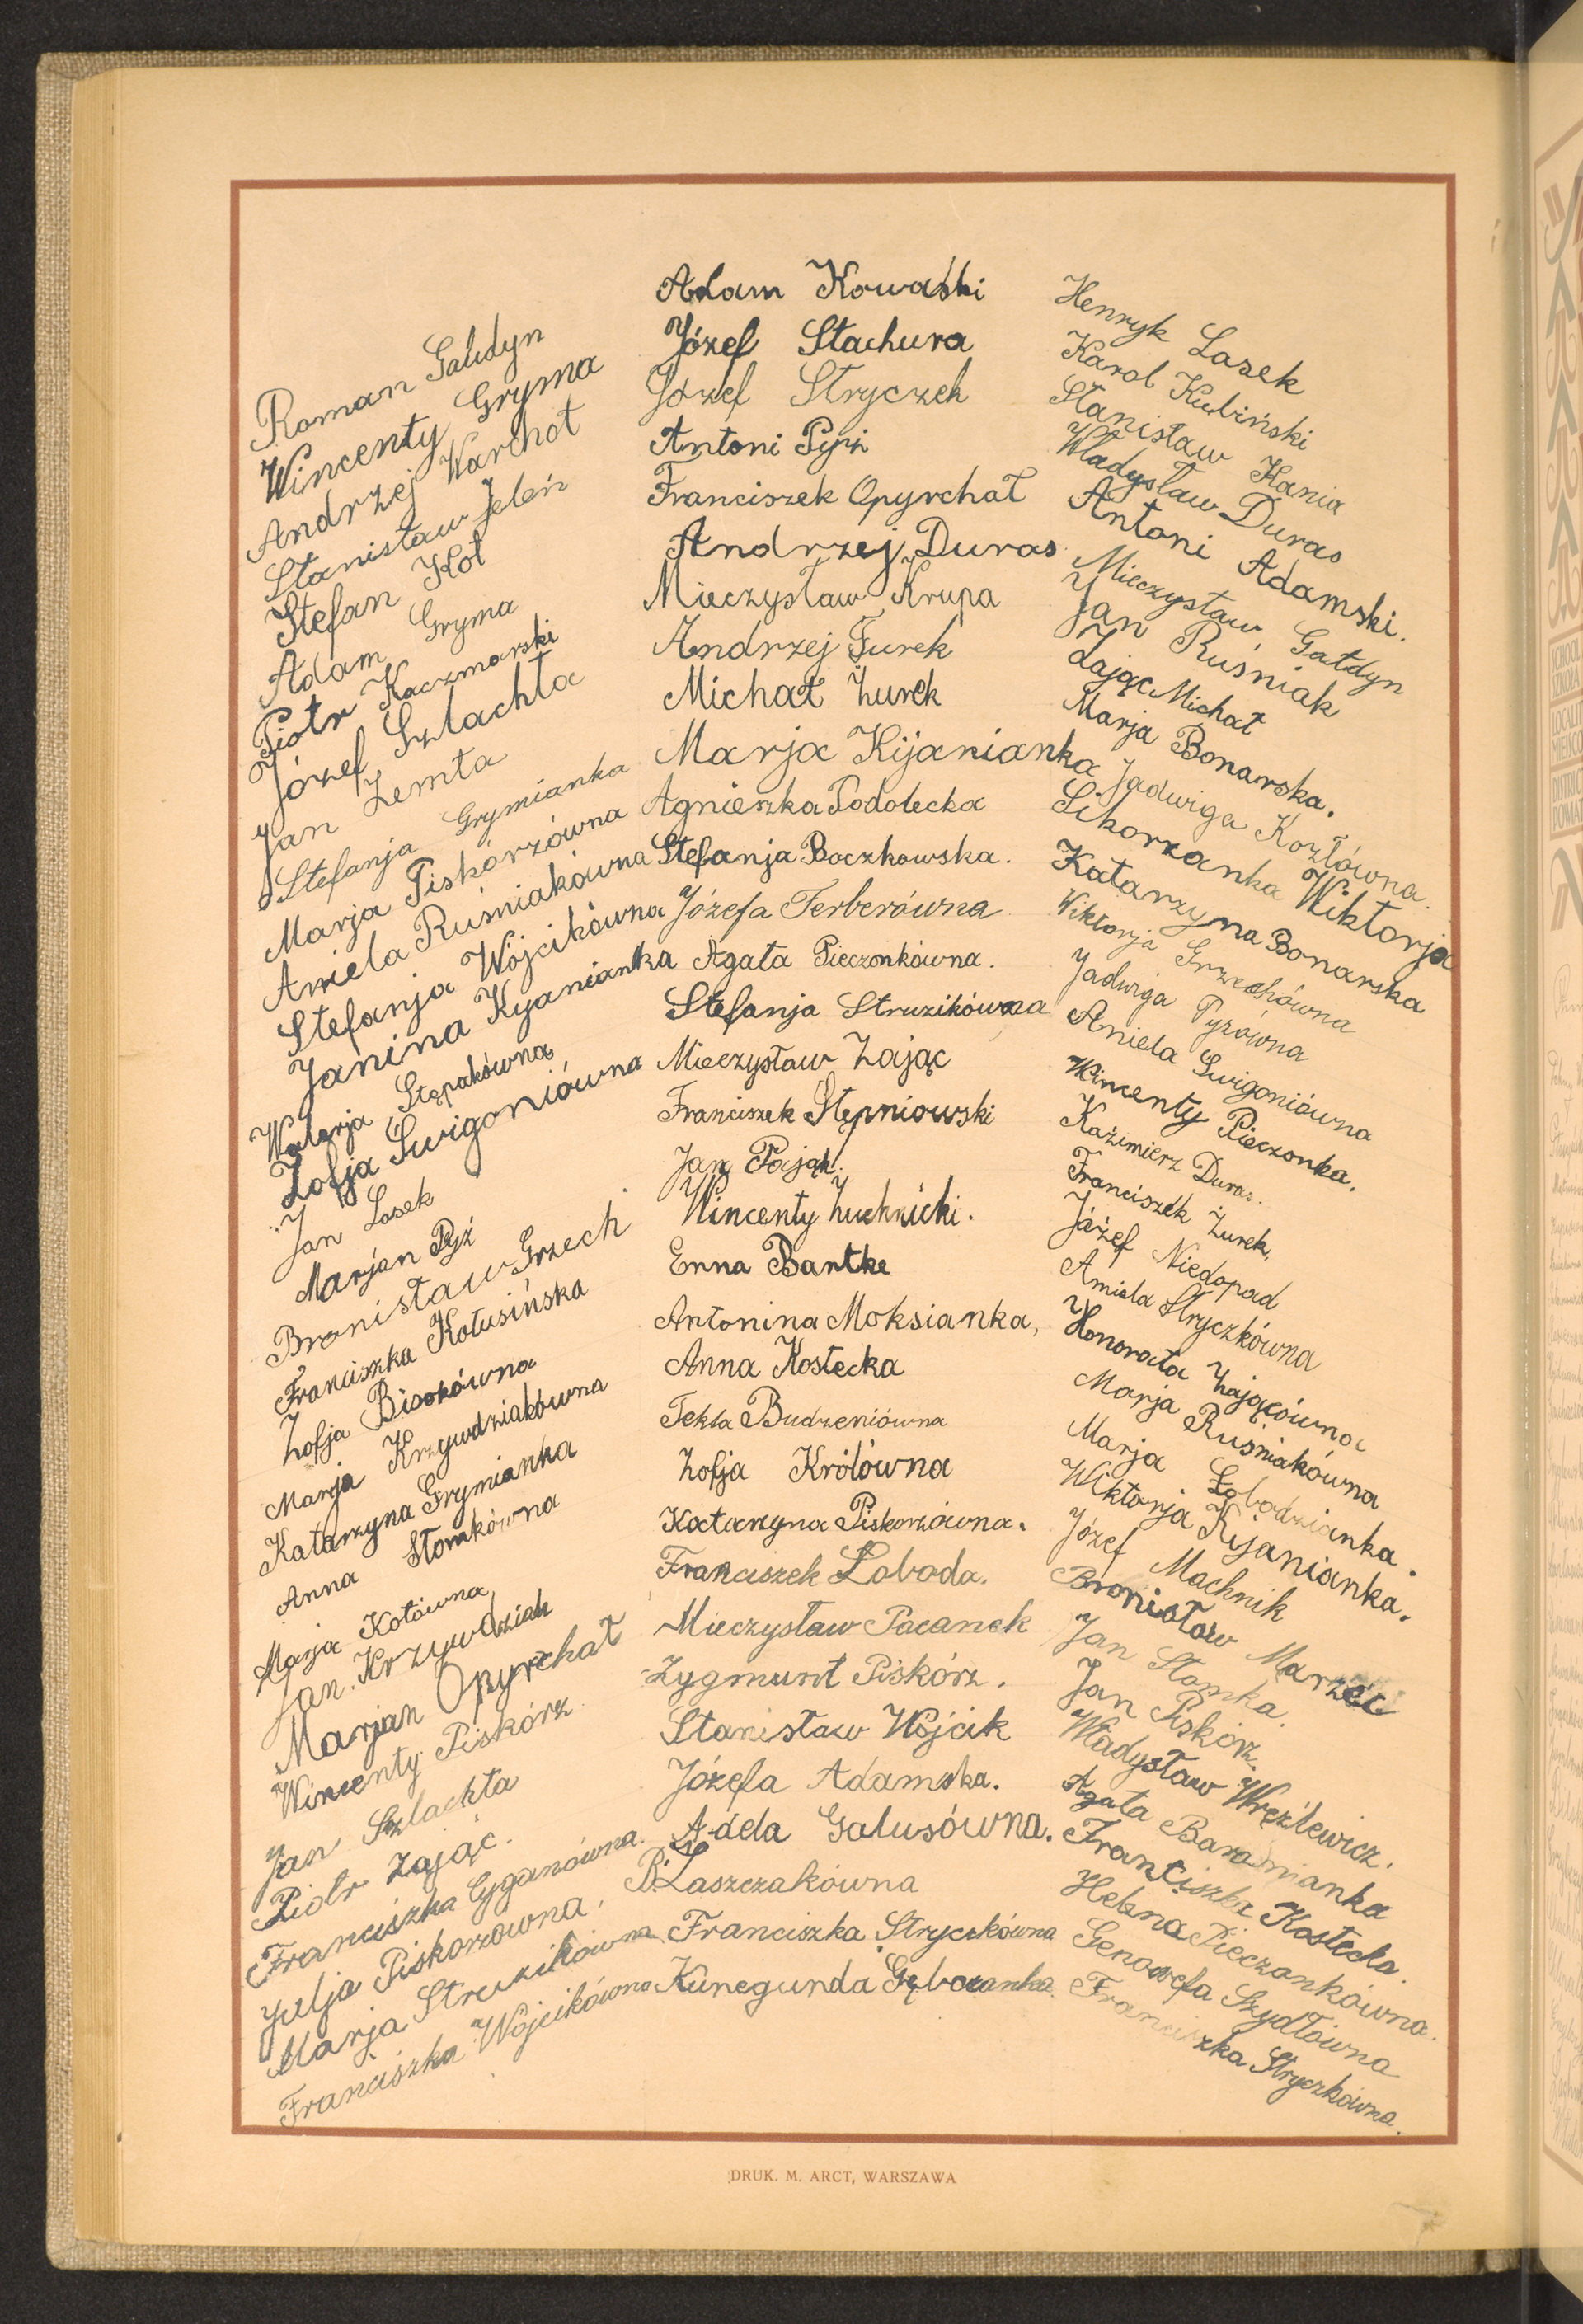 Roman Gałdyn
Wincenty Gryma
Andrzej Warchoł
Stanisław Jeleń
Stefan Kot
Adam Gryma
Piotr Kaczmarski
Józef Szlachta
Jan Zemła
Stefanja Grymianka
Marja Piskórzówna
Aniela Ruśniakówna
Stefanja Wójcikówna
Janina Kyanianka
Walerja Stąpakówna
Zofja Świgoniówna
Jan Lasek
Marjan Pyż
Bronisław Grzech
Franciszka Kołusińska
Zofja Bisokówna
Marja Krzywdziakówna
Katarzyna Grymianka
Anna Słomkówna
Marja Kotówna
Jan Krzywdziak
Marjan Opyrchał
Wincenty Piskórz
Jan Szlachta
Piotr Zając.
Franciszka Cyganówna.
Julja Piskorzowna,
Marja Struzikówna
Franciszka Wójcikówna
Adam Kowalski
Józef Stachura
Józef Stryczek
Antoni Pyż
Franciszek Opyrchał
Andrzej Duras
Mieczysław Krupa
Andrzej Furek
Michał Żurek
Marja Kijanianka
Agnieszka Podolecka
Stefanja Boczkowska.
Józefa Ferberówna
Agata Pieczonkówna.
Stefanja Struzikówna
Mieczysław Zając
Franciszek Stępniowski
Jan Pająk.
Wincenty Żuchnicki.
Erna Bantke
Antonina Moksianka,
Anna Kostecka
Tekla Budzeniówna
Zofja Królówna
Katarzyna Piskorzówna.
Franciszek Łoboda.
Mieczysław Pacanek
Zygmunt Piskórz.
Stanisław Wójcik
Józefa Adamska.
Adela Galusówna.
P. Łaszczakówna
Franciszka Stryczkówna
Kunegunda Gębczanka.
Henryk Lasek
Karol Kubiński
Stanisław Kania
Władysław Duras
Antoni Adamski.
Mieczysław Gałdyn
Jan Ruśniak
Zając Michał
Marja Bonarska.
Jadwiga Kozłówna.
Sikorzanka Wiktorja
Katarzyna Bonarska
Wiktorja Grzechówna
Jadwiga Pyzówna
Aniela Świgoniówna
Wincenty Pieczonka.
Kazimierz Duras.
Franciszek Żurek,
Józef Niedopad
Aniela Stryczkówna
Honorata Zającówna
Marja Ruśniakówna
Marja Łobodzianka.
Wiktorja Kijanianka.
Józef Machnik
Bronisław Marzec
Jan Słomka.
Jan Piskórz.
Władysław Wręźlewicz.
Agata Baranianka
Franciszka Kostecka.
Helena Pieczonkówna.
Genowefa Szydłówna
Franciszka Stryczkówna.
DRUK. M. ARCT, WARSZAWA